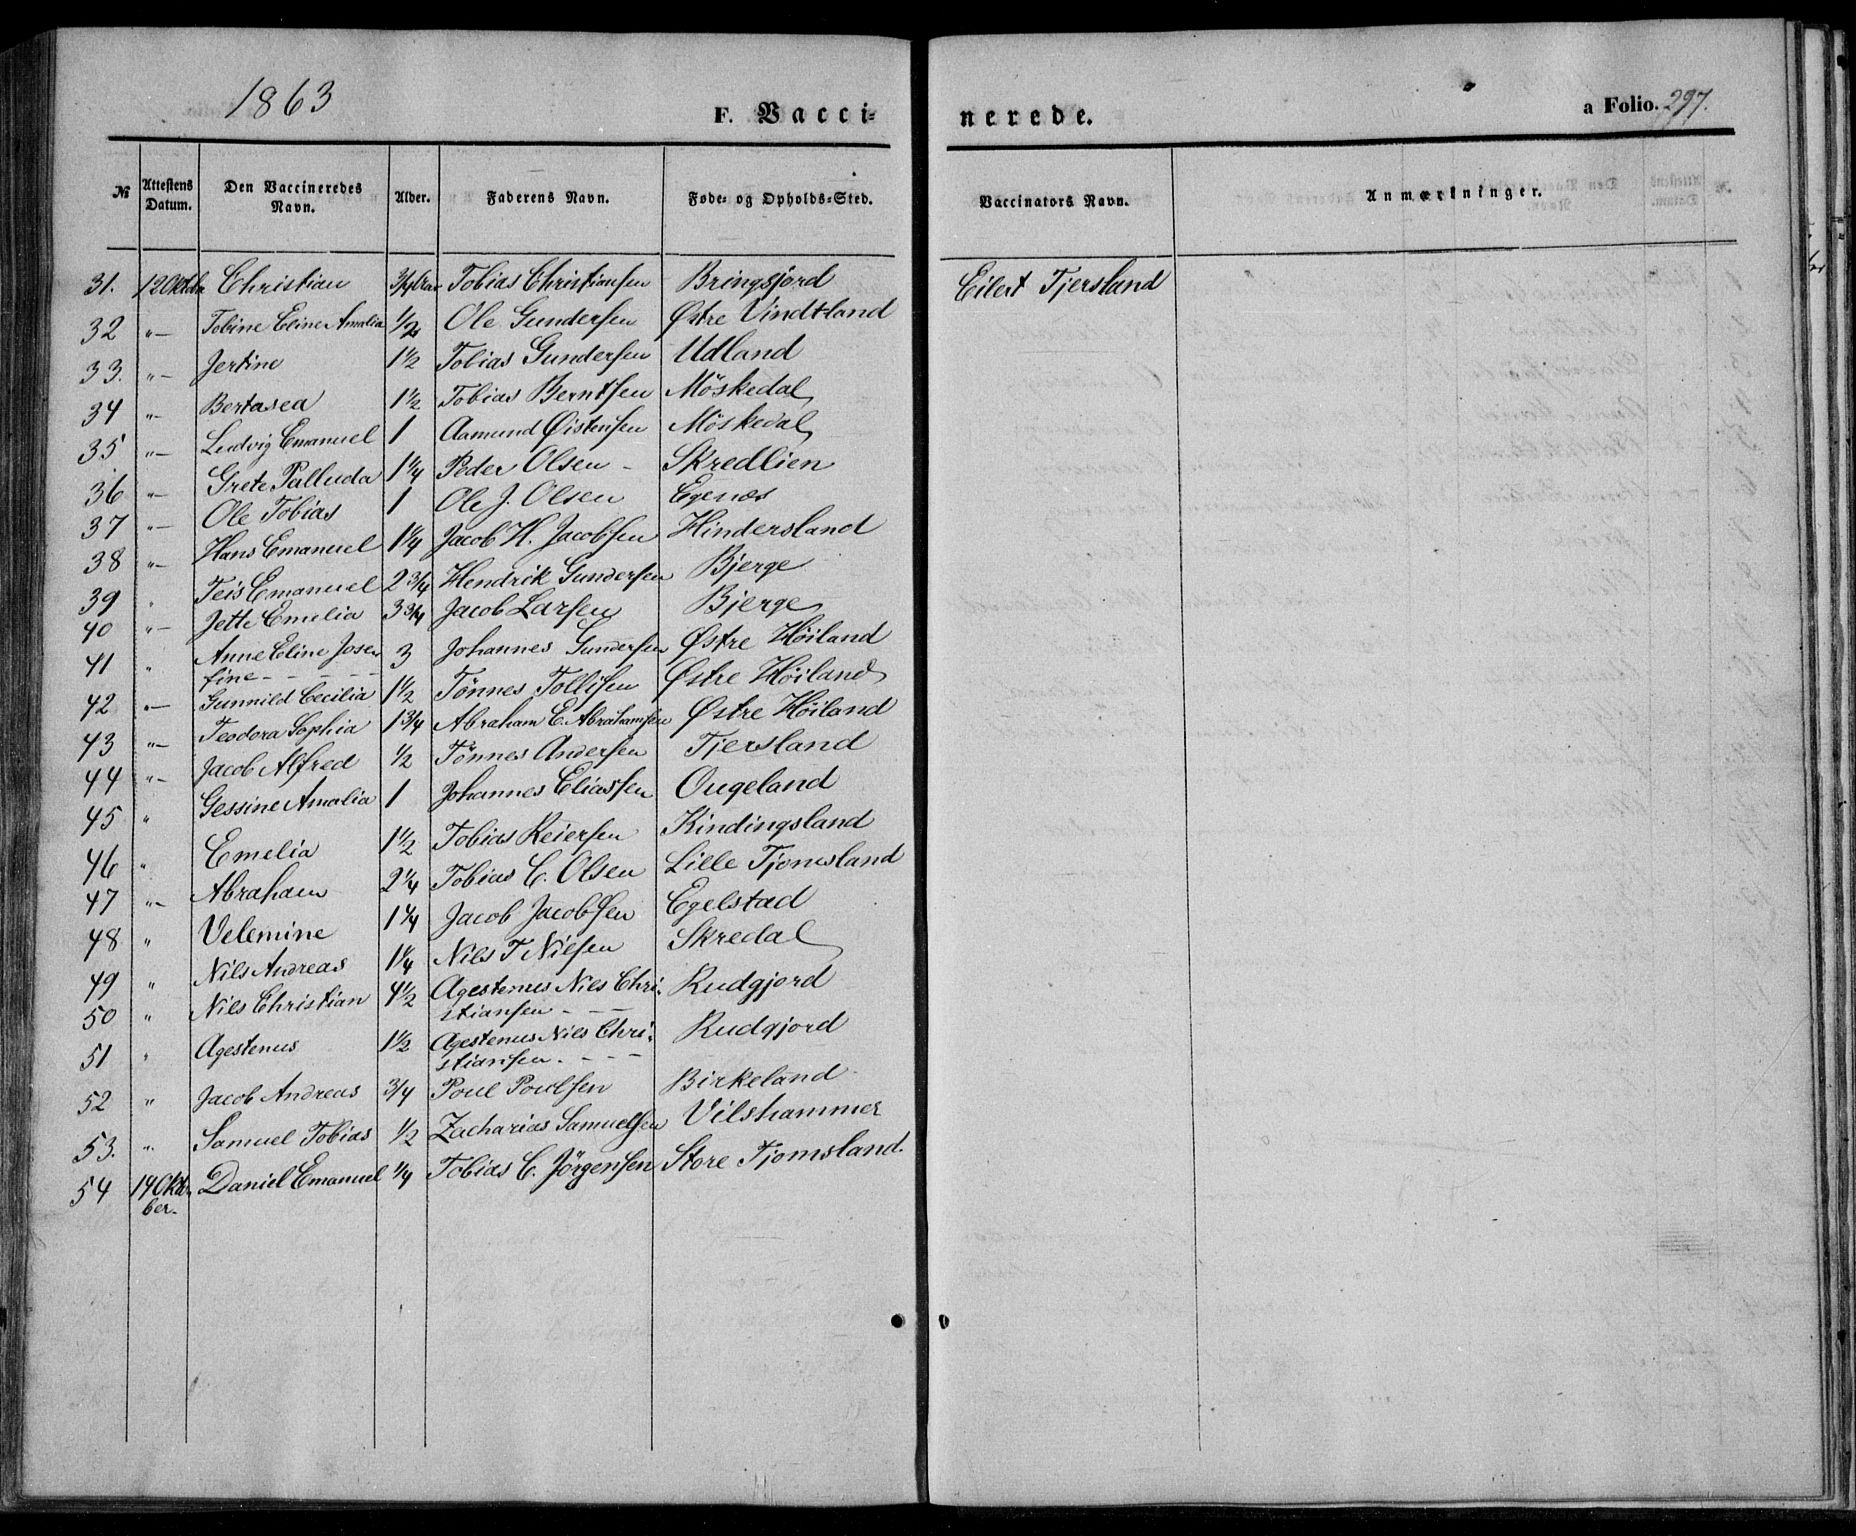 1863
F. Vacci-
nerede.
a Folio. 297.
№ Attestens Datum. Den Vaccineredes Navn. Alder. Faderens Navn. Føde- og Opholds-Sted. Vaccinators Navn. Anmærkninger.
31. 12 Oktbr Christian 3/4 Tobias Christiansen Bringsjord Eilert Tjersland
32 "— Tobine Eline Amalia 1/2 Ole Gundersen Østre Vindtland
33. "— Jertine 1 1/2 Tobias Gundersen Udland
34 "— Bertasea 1 1/2 Tobias Berntsen Möskedal
35 "— Ludvig Emanuel 1 Aamund Øistensen Möskedal
36 "— Grete Palluda 1 1/4 Peder Olsen – Skredlien
37 "— Ole Tobias 1 Ole J. Olsen Egenæs
38 "— Hans Emanuel 1 1/4 Jacob H. Jacobsen Hindersland
39 " Teis Emanuel 2 3/4 Hendrik Gundersen Bjerge
40 "— Jette Emelia 3 3/4 Jacob Larsen Bjerge
41 " Anne Eline Jose- 3 Johannes Gundersen Østre Höiland
fine - - - - -
42 "— Gunnild Cecilia 1 1/2 Tönnes Tollisen Østre Höiland
43 "— Teodora Sophia 1 3/4 Abraham E. Abrahamsen Østre Höiland
44 "— Jacob Alfred 1/2 Tönnes Andersen Tjersland
45 " Gessine Amalia 1 Johannes Eliassen Ougeland
46 " Emelia 1 1/2 Tobias Reiersen Kindingsland
47 "— Abraham 2 1/4 Tobias C. Olsen Lille Tjomsland
48 " Velemine 1 1/4 Jacob Jacobsen Egelstad
49 " Nils Andreas 1 1/4 Nils T Nilsen Skredal
50 " Nils Christian 4 1/2 Agestenus Nils Chri- Rudgjord
stiansen - - -
51 " Agestenus 1 1/2 Agestenus Nils Chri- Rudgjord
stiansen - - - -
52 " Jacob Andreas 3/4 Poul Poulsen Birkeland
53. " Samuel Tobias 1/2 Zacharias Samuelsen Vilshammer
54 19 Okto- Daniel Emanuel 1/4 Tobias C. Jörgensen Store Tjomsland.
ber.